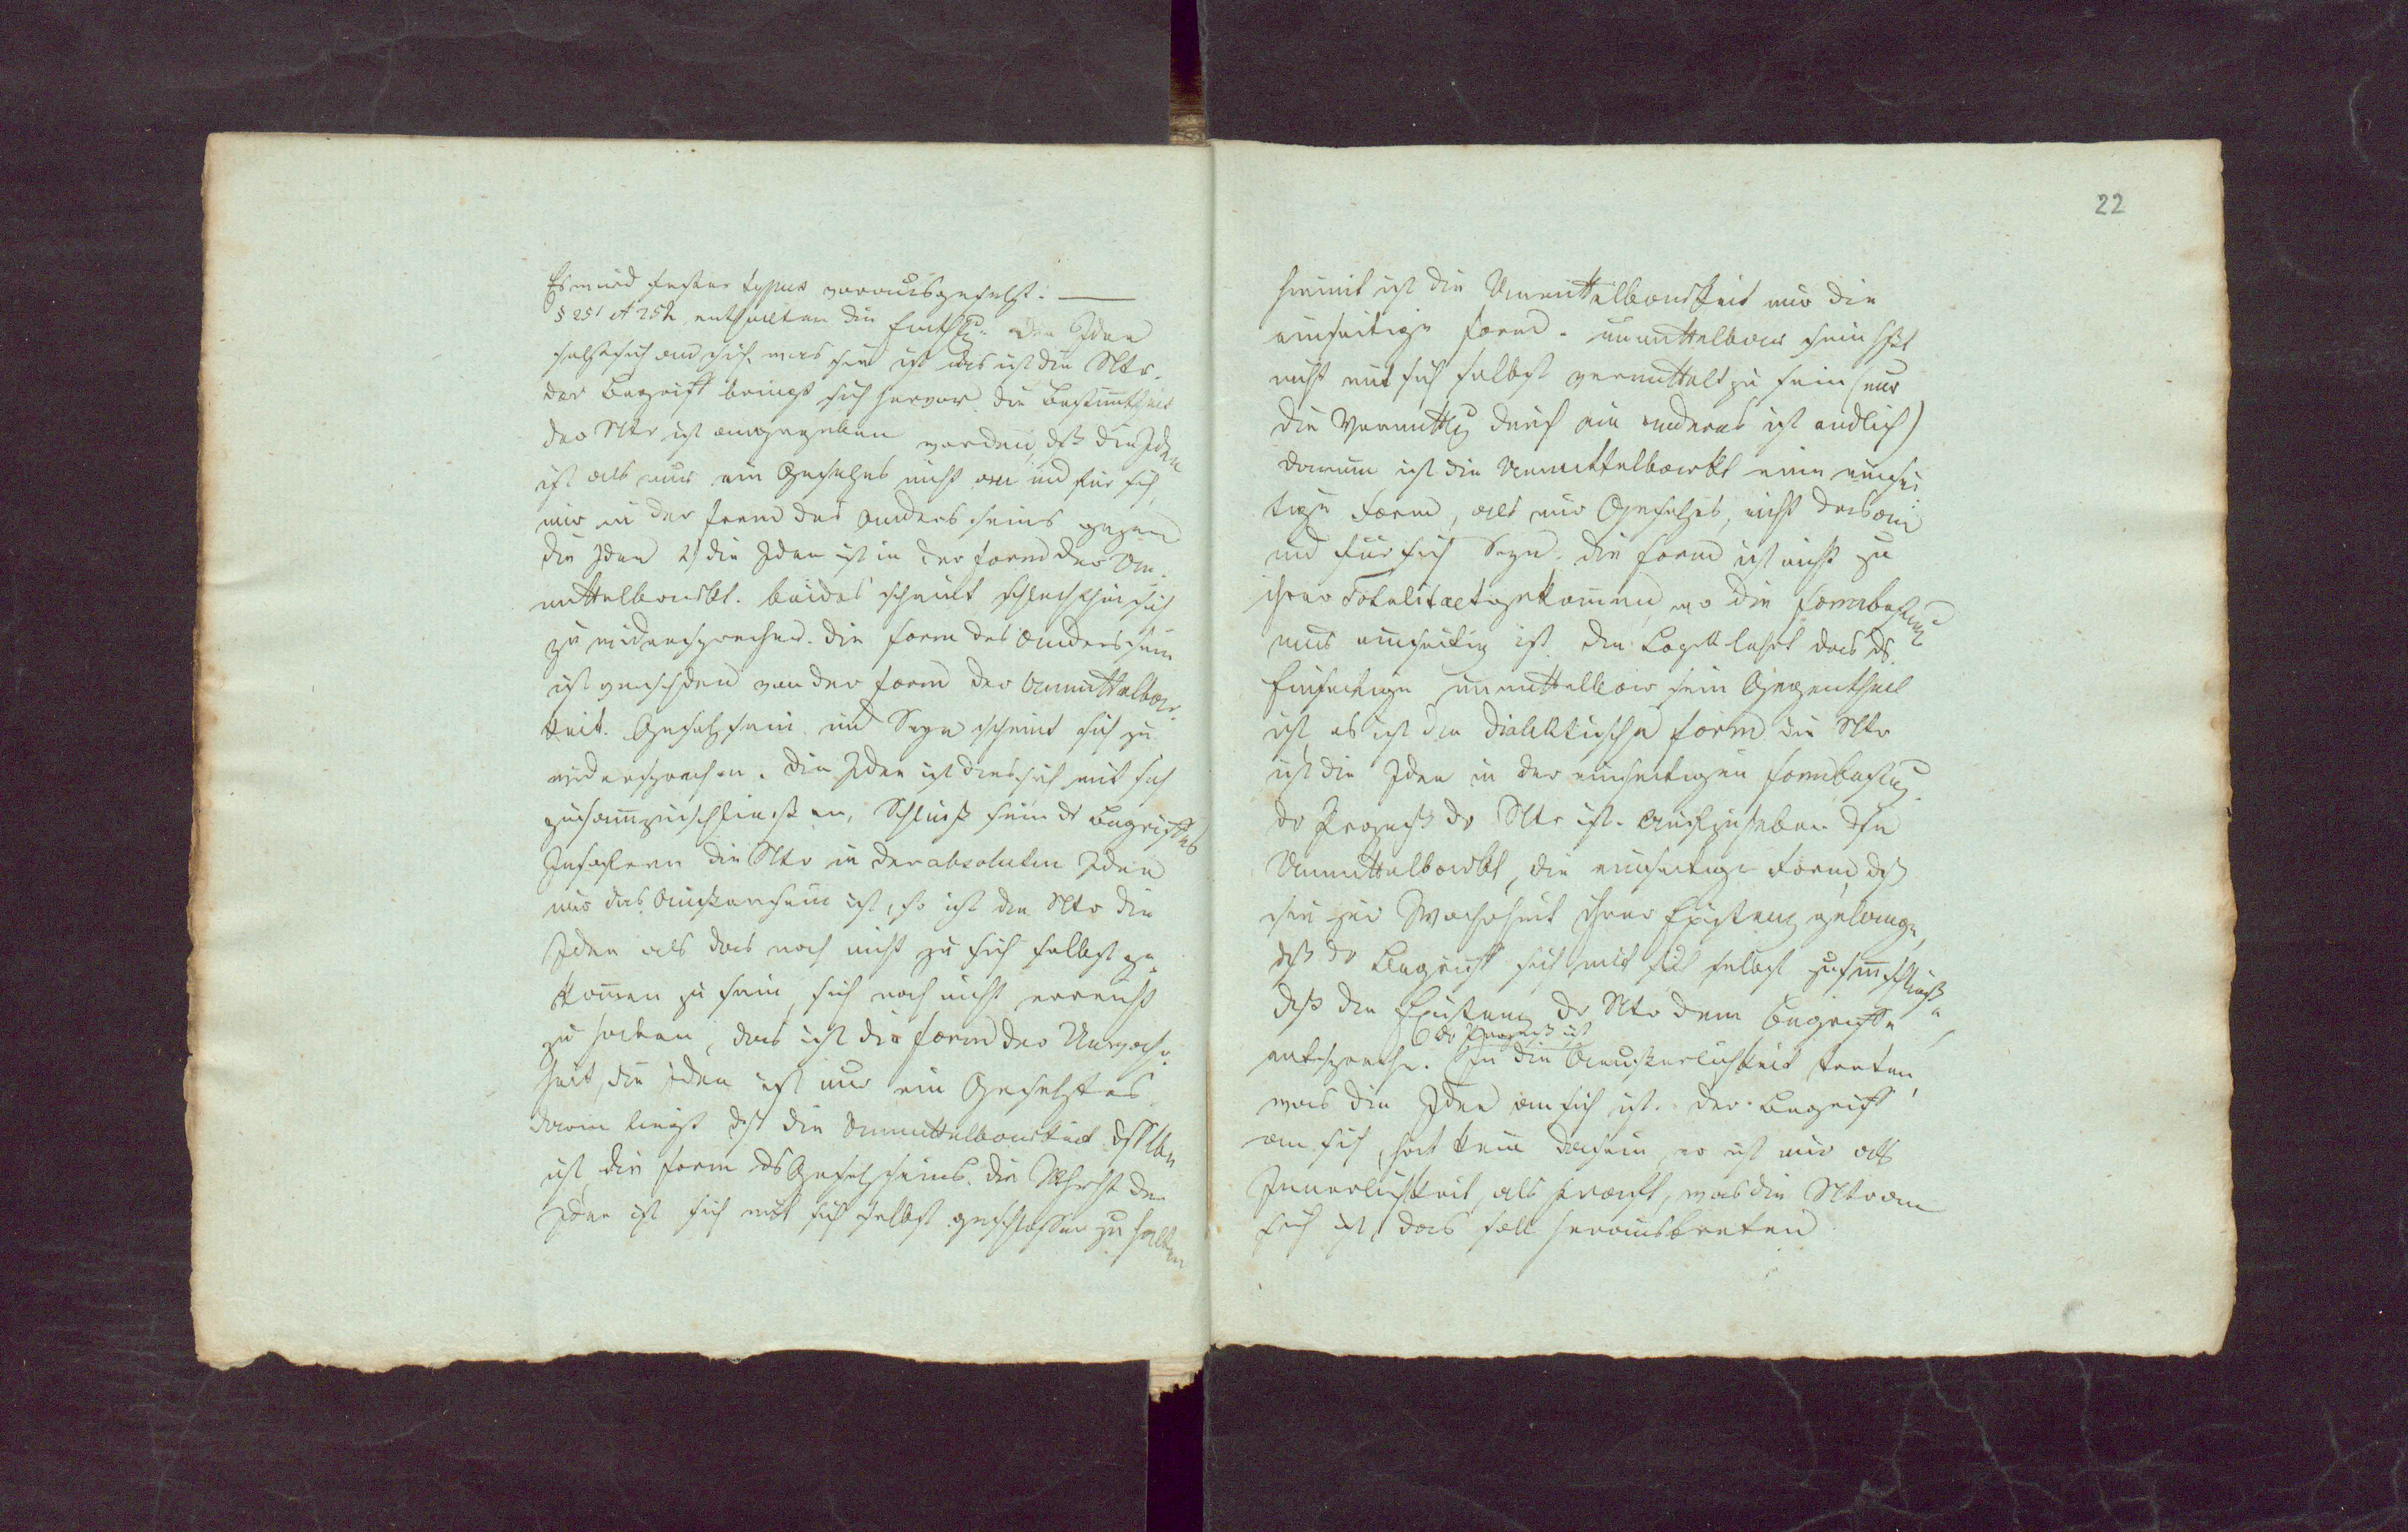 Es wird fester typus vorausgesetzt. —
§ 251 et 252 enthalten die Einthlg. Die Idee
setzt sich aus sich, was sie ist das ist die Ntr.
der Begriff bringt sich hervor. die Bestimtheit
der Ntr ist angegeben worden, dß die Idee
ist als nur ein Gesetztes nicht an und für sich,
nur in der Form des Andersseins gegen
die Idee 2) die Idee ist in der Form der Un-
mittelbarkt. beides scheint schlechthin sich
zu widersprechen. die Form des Andersseins
ist verschden von der Form der Unmittelbar-
keit. Gesetztsein und Seyn scheint sich zu
widersprechen. Die Idee ist dies sich mit sich
zusamenzuschließen, Schluß sein ds Begriffes
Insofern die Ntr in der absoluten Idee
nur das Außersein ist, so ist die Ntr die
Idee als das noch nicht zu sich selbst ge-
komen zu sein, sich noch nicht erreicht
zu haben, das ist die Form der Unwahr-
heit, die Idee ist nur ein Gesetztes.
darin liegt dß die Unmittelbarkeit dsslben
ist die Form ds Gesetzseins. die Whrht der
Idee ist sich mit sich selbst geschlossen zu haben
22
hiemit ist die Unmittelbarkeit nur die
einseitige Form. unmittelbar sein hßt
nicht mit sich selbst vermittelt zu sein (nur
die Vermittlg durch ein anderes ist endlich)
darum ist die Unmittelbarkt eine einsei-
tige Form, als nur Gesetztes, nicht das an
und für sich Seyn. die Form ist nicht zu
ihrer Totalitaet gekomen, wo die Formbestimg
nur einseitig ist. Die Logik lehrt das ds
Einseitige unmittelbar sein Gegentheil
ist, es ist die Dialektische Form. die Ntr
ist die Idee in der einseitigen Formbestimg.
dr Prozeß dr Ntr ist Aufzuheben dse
Unmittelbarkt, die einseitige Form, dß
sie zur Wahrheit ihrer Existenz gelange,
dß dr Begriff sich mit sich selbst zusmschließe
dß die Existenz dr Ntr dem Begriffe
dr Prozeß ist
entspreche. In die Aeußerlichkeit treten,
was die Idee an sich ist. der Begriff
an sich, hat kein Dasein, er ist nur als
Innerlichkeit, als Kraft, was die Ntr an
sich ist, das soll heraustreten